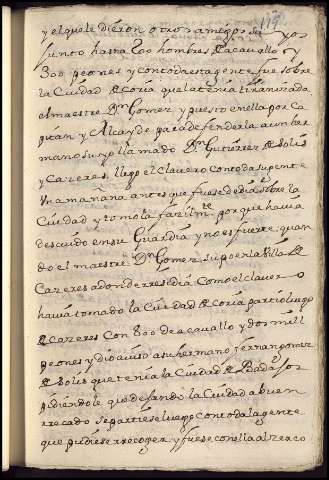 119
y el que le dieron otro namigos su yos
Junto hasta 200 hombres de acavallo y
300 peones y con todo esta gente fue sobre
la Ciudad de Coria que la tenia tiranizada,
el maestre Dn. Gomez y puesto en ella por Ca
pitan y Alcayde para defenderla a un her
mano suyo llamado Dn. Gutierrez de Solis
y Cazeres. llego el Clavero con toda su gente
una mañana antes que fuese de dia sobre la
Ciudad y tomola fazilmte. porque havia
descuido en su Guardia y no es fuerte: quan
do el maestre Dn. Gomez supo en la Villa de
Cazeres adonde rresidia Como el claver o
havia tomado la Ciudad de Coria partio luego
de cazeres con 800 de acavallo y dos mill
peones y dio aviso a su hermano fernan gomez
de Solis que tenia la Ciudad de Badajoz
pidiendole que dejando la Ciudad a buen
rrecado se partiese luego con toda la gente
que pudiese rrecoger y fuese con ella al zerco